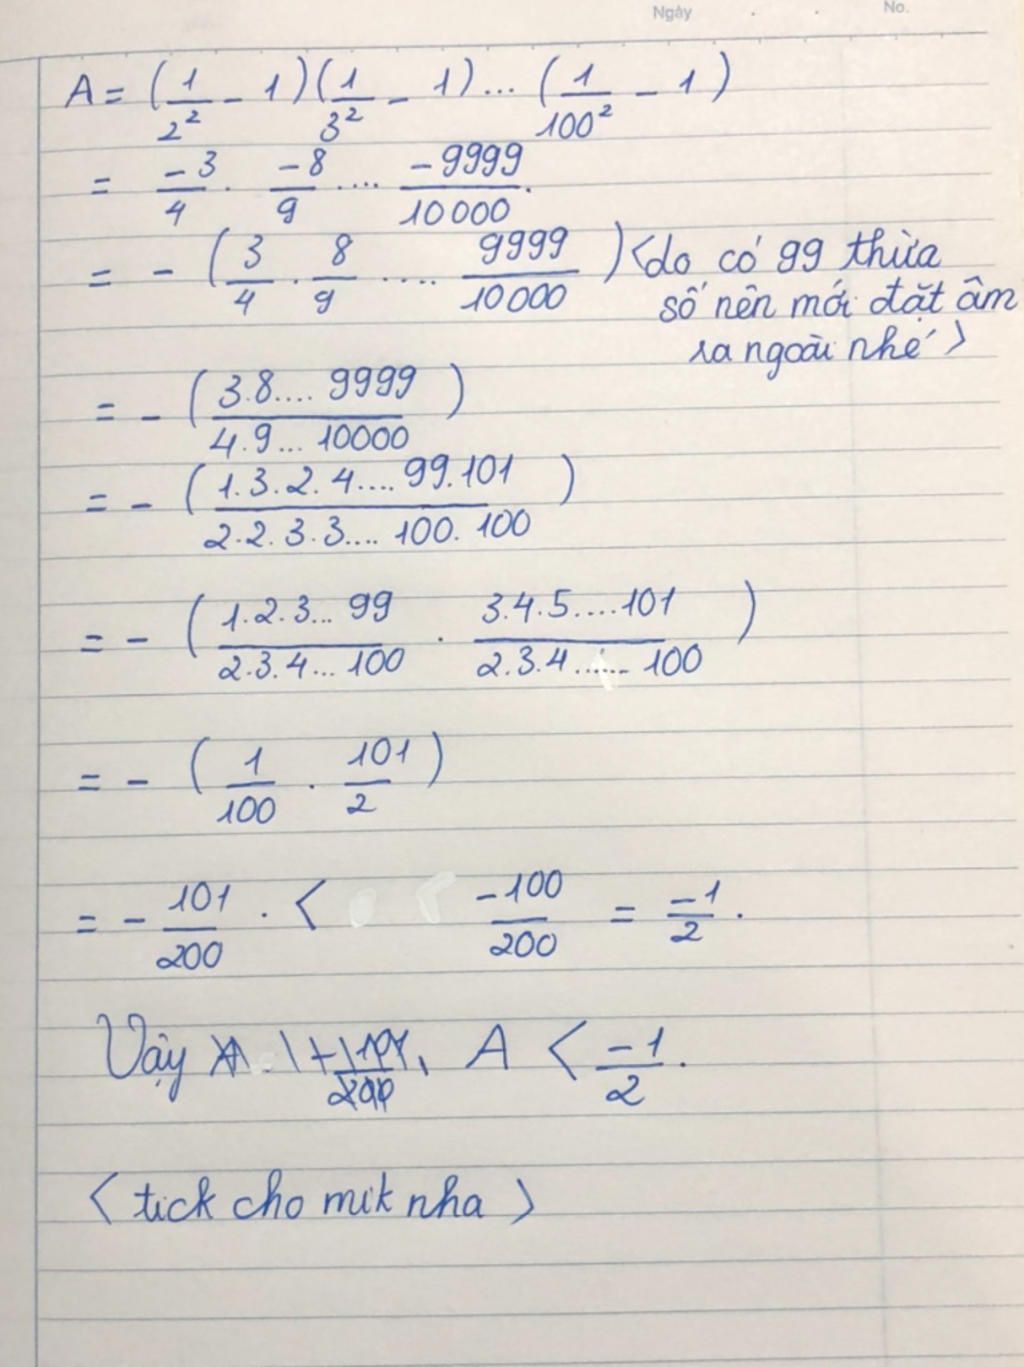 Ngày . . No.
A = (1/2² - 1)(1/3² - 1)... (1/100² - 1)
= -3/4 . -8/9 .... -9999/10000.
= - (3/4 . 8/9 .... 9999/10000) <do có 99 thừa
số nên mới đặt âm
ra ngoài nhé>
= - (3.8.... 9999 / 4.9... 10000)
= - (1.3.2.4.... 99.101 / 2.2.3.3.... 100.100)
= - (1.2.3... 99 / 2.3.4... 100 . 3.4.5....101 / 2.3.4....... 100)
= - (1/100 . 101/2)
= - 101/200 . < -100/200 = -1/2 .
Vậy A < -1/2 .
<tick cho mik nha>